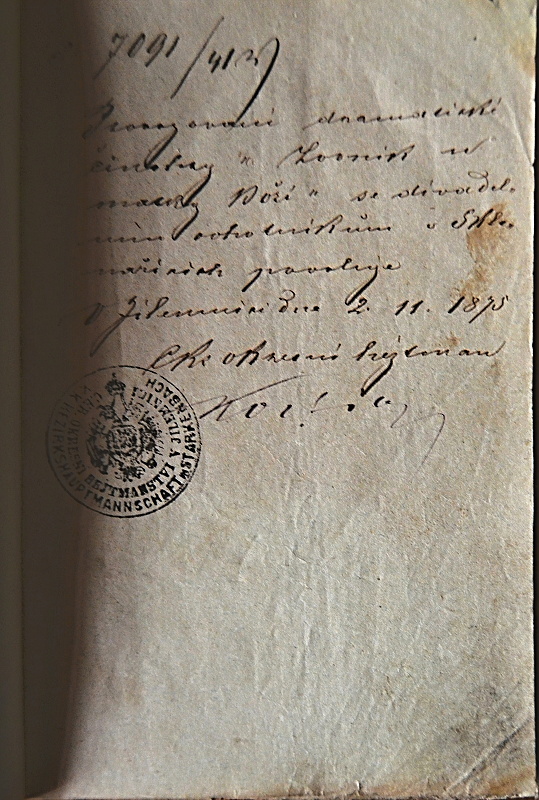 7091/
Provozování dramatické
činohry „Zvoník u
matky Boží“ se divadel-
ním ochotníkům v
povoluje
V Jilemnici dne 2. 11. 1875
C.k. okresní hejtman
C.K. OKRESNÍ HEJTMANSTVÍ JILEMNICI
K.K. BEZIRKSHAUPTMANNSCHAFT STARKENBACH